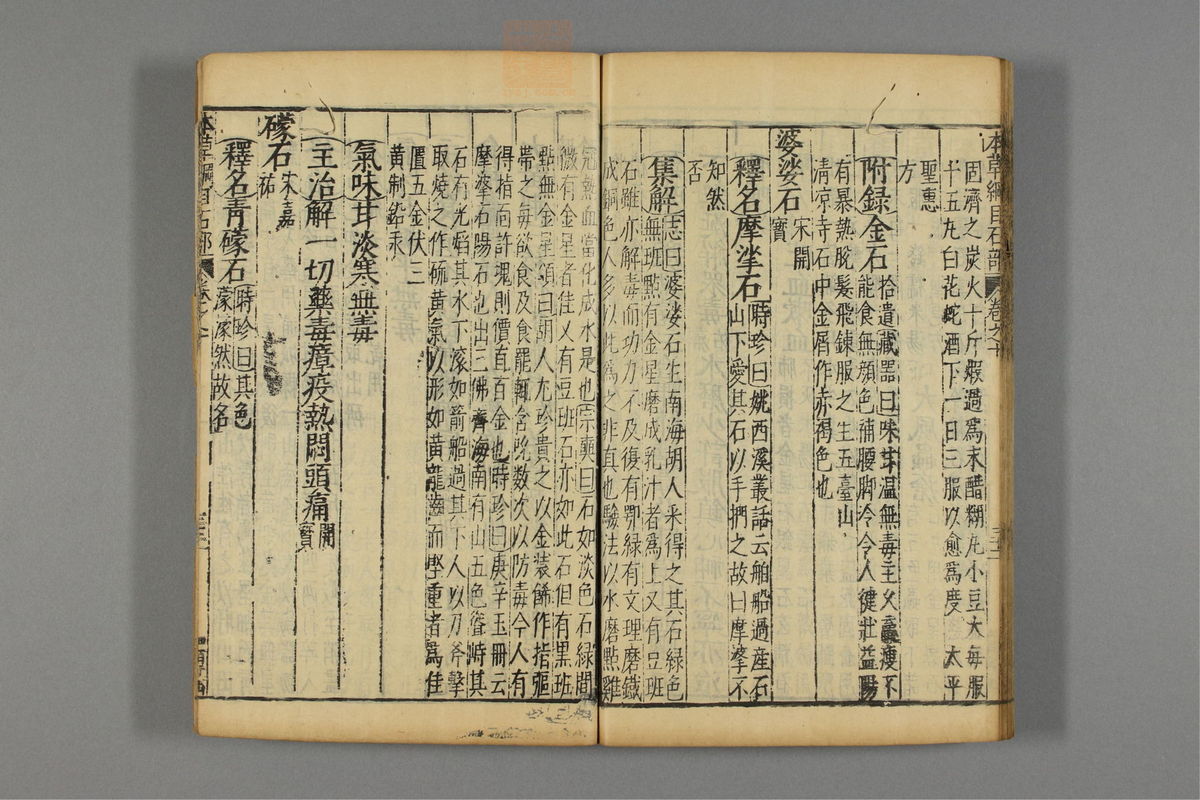 本草綱目石部 卷之十
固濟之炭火十斤煆過爲末醋糊丸小豆大每服
十五丸白花蛇酒下一日三服以愈爲度太平
聖惠
方
附録金石拾遺藏器曰味甘温無毒主久羸瘦不
能食無顔色補腰脚冷令人健壯益陽
有暴熱脫髮飛鍊服之生五臺山
清凉寺石中金屑作赤褐色也
婆娑石宋開
寳
釋名摩挲石時珍曰姚西溪叢話云舶船過産石
山下愛其石以手捫之故曰摩挲不
知然
否
集解志曰婆娑石生南海胡人采得之其石緑色
無斑點有金星磨成乳汁者爲上又有豆班
石雖亦解毒而功力不及復有鄂緑有文理磨鐵
成銅色人多以此爲之非真也驗法以水磨點雞
冠熱血當化成水是也宗奭曰石如淡色石緑間
微有金星者佳又有豆班石亦如此石但有黒班
點無金星頌曰胡人尤珍貴之以金装飾作指彄
帶之每飲食及食罷輒含吮数次以防毒今人有
得指面許塊則價直百金也時珍曰庚辛玉冊云
摩挲石陽石也出三佛齊海南有山五色聳峙其
石有光焰其水下滚如箭船過其下人以刀斧擊
取燒之作硫黄氣以形如黄龍齒而堅重者爲佳
匱五金伏三
黄制鉛汞
氣味甘淡寒無毒
主治解一切藥毒瘴疫熱悶頭痛開
寳
礞石宋嘉
祐
釋名青礞石時珍曰其色
濛濛然故名
本草綱目石部